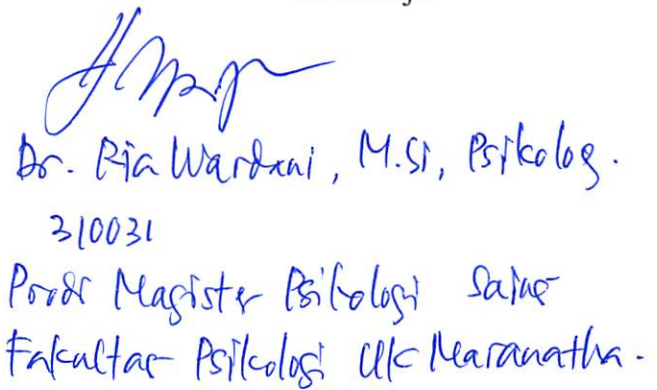 Dr. Ria Wardani, M.Si, Psikolog.
310031
Prodi Magister Psikologi Sains
Fakultas Psikologi UK Maranatha.